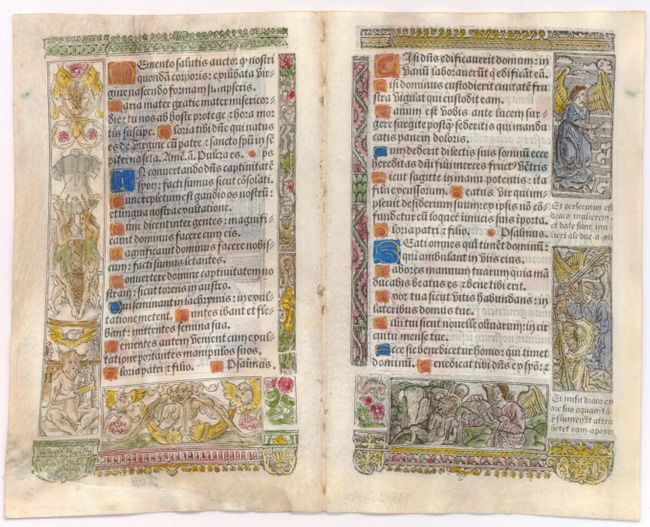 Memento salutis auctor q̄ nostri
quondā corporis: ex illibata vir
gine nascendo formam sumpseris.
Maria mater gratie mater misericor
die: tu nos ab hoste protege ⁊ hora mor
tis suscipe. Gloria tibi dn̄e qui natus
es de virgine cū patre ⁊ sancto spū in se
piterna secla. Amē. ā. Pulcra es. ps̄
In convertendo dn̄s captivitatē
syon: facti sumus sicut cōsolati.
Tunc repletum est gaudio os nostrū:
et lingua nostra exultatione.
Tunc dicent inter gentes: magnifi
cavit dominus facere cum eis.
Magnificavit dominus facere nobis
cum: facti sumus letantes.
Convertere domine captivitatem no
stram: sicut torrens in austro.
Qui seminant in lachrymis: in exul
tatione metent. Euntes ibant et fle
bant: mittentes semina sua.
Venientes autem venient cum exul
tatione portantes manipulos suos.
Gloria patri ⁊ filio. Psalmus.
Nisi dn̄s edificaverit domum: in
vanū laboraverūt q̄ edificāt eā.
Nisi dominus custodierit civitatē fru
stra vigilat qui custodit eam.
Vanum est vobis ante lucem sur
gere surgite postq̄ sederitis qui mandu
catis panem doloris.
Cum dederit dilectis suis somnū ecce
hereditas dn̄i filii merces fruct⁹ vētris
Sicut sagitte in manu potentis: ita
filii excussorum. Beatus vir qui im
plevit desiderium suum ex ipsis nō cō
fundetur cū loquet̄ inimicis suis ī porta.
Gloria patri ⁊ filio. Psalmus.
Beati omnes qui timēt dominū:
qui ambulant in viis eius.
Labores manuum tuarum quia mā
ducabis beatus es ⁊ bene tibi erit.
Uxor tua sicut vitis habundans: in
lateribus domus tue.
Filii tui sicut novelle olivarum: in cir
cuitu mense tue.
Ecce sic benedicetur homo: qui timet
dominū. Benedicat tibi dn̄s ex syō: ⁊
Et persecutus est
draco mulierem
et date sunt mu
lieri ale due. apo
Et misit draco ex
ore suo aquam tā
q̄ flumen et attra
heret eam. apoxii